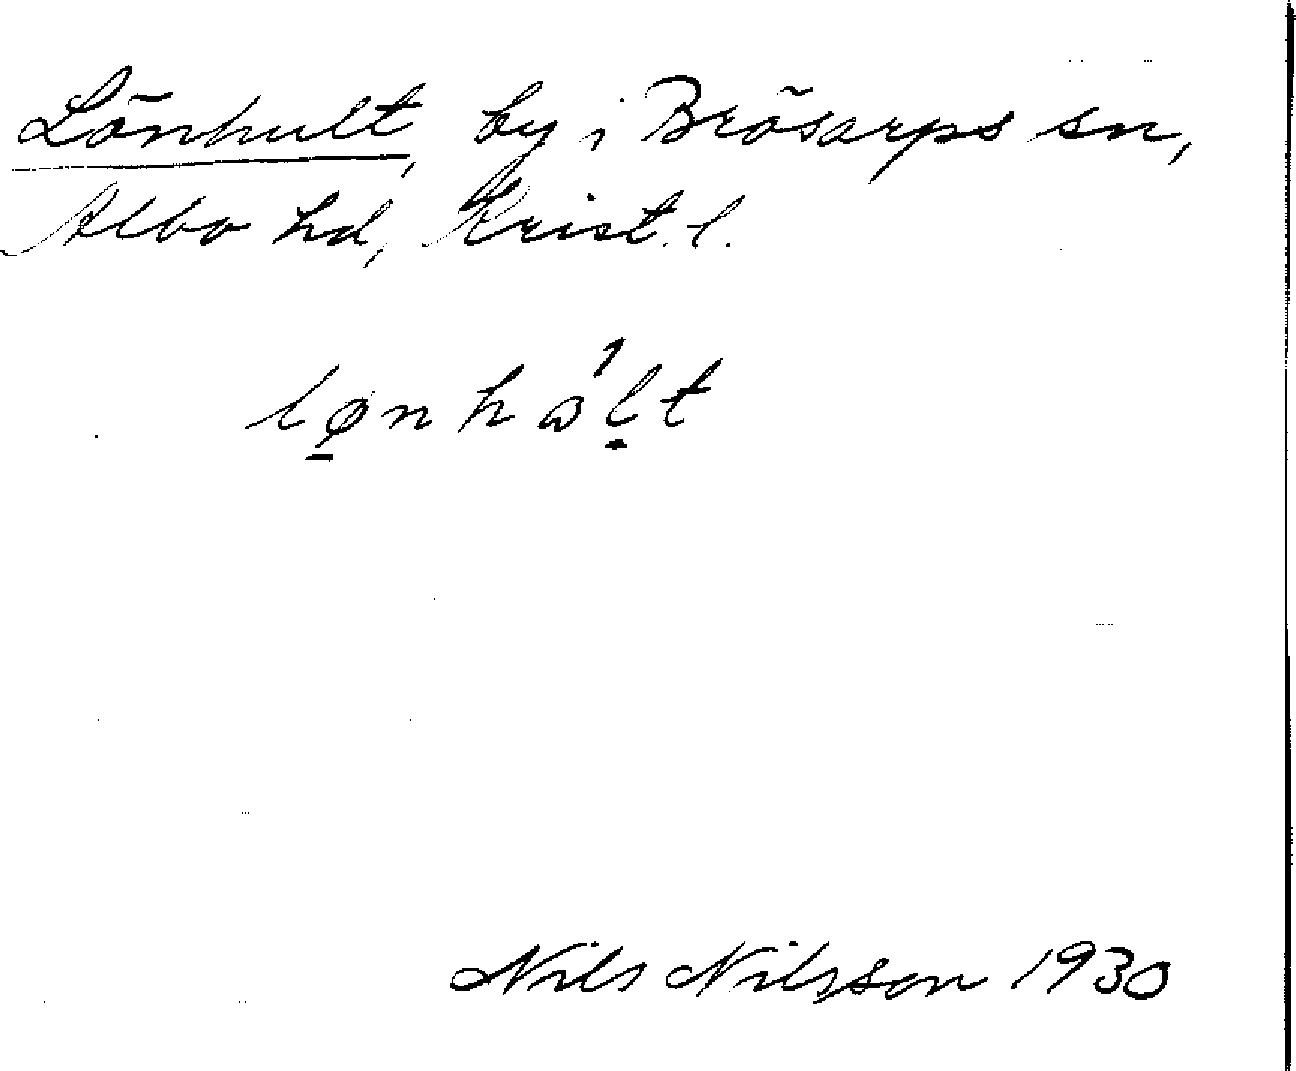 Lönhult, by i Brösarps sn,
Albo hd, Krist. l.
lø̱nhω´l̠t
Nils Nilsson 1930